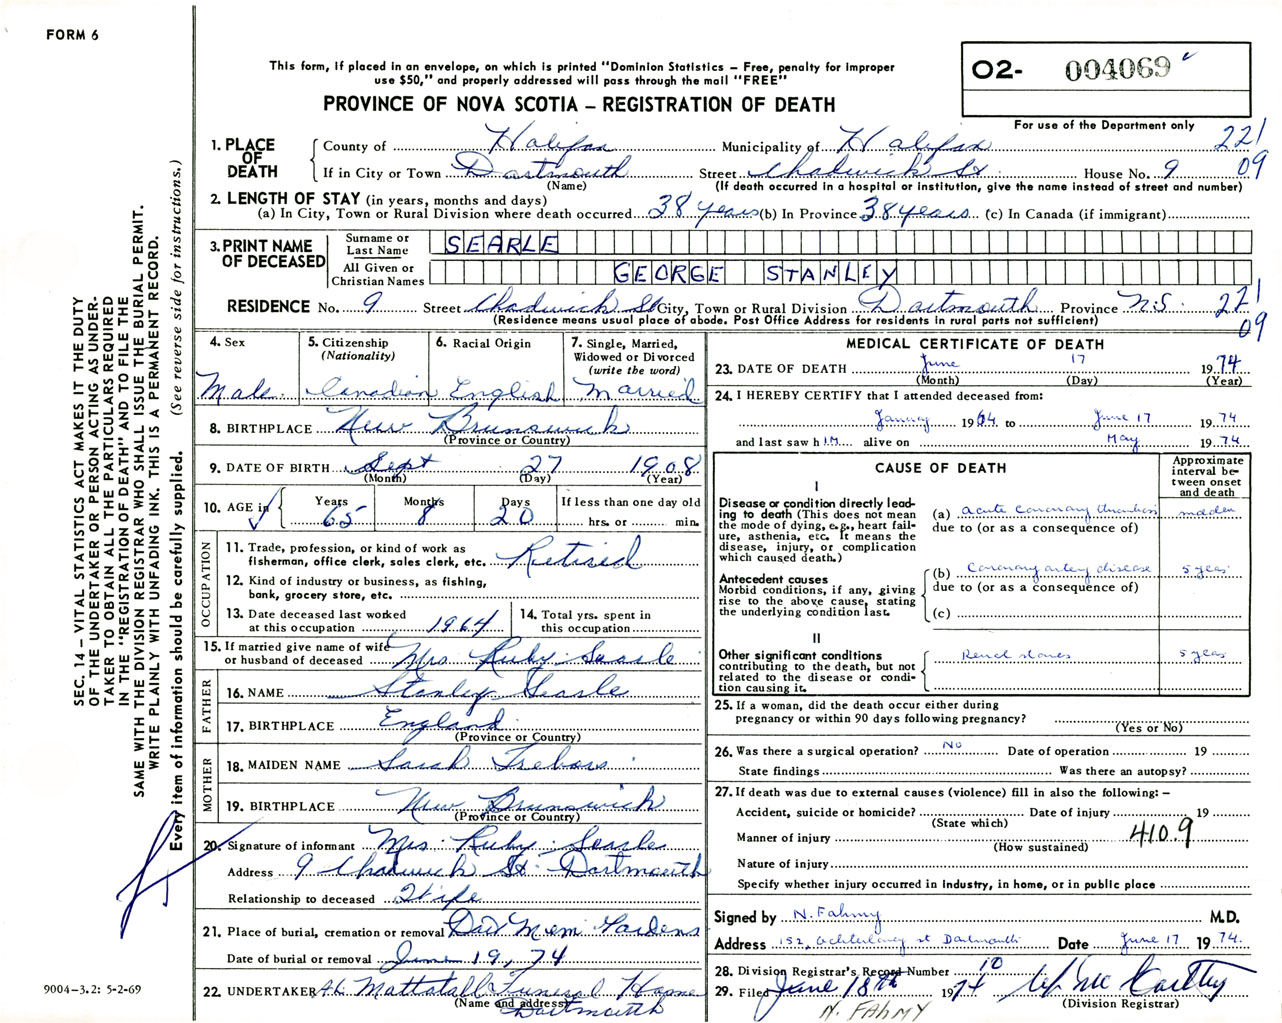 FORM 6
This form, if placed in an envelope, on which is printed "Dominion Statistics – Free, penalty for improper
use $50," and properly addressed will pass through the mail "FREE"
PROVINCE OF NOVA SCOTIA – REGISTRATION OF DEATH
02- 004069
For use of the Department only
1. PLACE OF DEATH County of Halifax Municipality of Halifax 221
If in City or Town Dartmouth Street Chadwick St House No. 9 09
(Name) (If death occurred in a hospital or institution, give the name instead of street and number)
2. LENGTH OF STAY (in years, months and days)
(a) In City, Town or Rural Division where death occurred 38 years (b) In Province 38 years (c) In Canada (if immigrant)
3. PRINT NAME OF DECEASED Surname or Last Name SEARLE
All Given or Christian Names GEORGE STANLEY
RESIDENCE No. 9 Street Chadwick St City, Town or Rural Division Dartmouth Province N.S. 221
(Residence means usual place of abode. Post Office Address for residents in rural parts not sufficient) 09
4. Sex Male
5. Citizenship (Nationality) Canadian
6. Racial Origin English
7. Single, Married, Widowed or Divorced (write the word) Married
8. BIRTHPLACE New Brunswick
(Province or Country)
9. DATE OF BIRTH Sept 27 1908
(Month) (Day) (Year)
10. AGE in Years 65 Months 8 Days 20 If less than one day old
hrs. or min.
OCCUPATION
11. Trade, profession, or kind of work as
fisherman, office clerk, sales clerk, etc. Retired
12. Kind of industry or business, as fishing,
bank, grocery store, etc.
13. Date deceased last worked
at this occupation 1964
14. Total yrs. spent in
this occupation
15. If married give name of wife
or husband of deceased Mrs Ruby Searle
FATHER
16. NAME Stanley Searle
17. BIRTHPLACE England
(Province or Country)
MOTHER
18. MAIDEN NAME Sarah
19. BIRTHPLACE New Brunswick
(Province or Country)
20. Signature of informant Mrs. Ruby Searle
Address 9 Chadwick St Dartmouth
Relationship to deceased Wife
21. Place of burial, cremation or removal Dart Mem Gardens
Date of burial or removal June 19, 74
22. UNDERTAKER A.C. Mattatall Funeral Home
(Name and address) Dartmouth
MEDICAL CERTIFICATE OF DEATH
23. DATE OF DEATH June 17 1974
(Month) (Day) (Year)
24. I HEREBY CERTIFY that I attended deceased from:
January 1964 to June 17 1974
and last saw him alive on May 1974
CAUSE OF DEATH
Approximate interval between onset and death
I
Disease or condition directly lead-
ing to death (This does not mean
the mode of dying, e.g., heart fail-
ure, asthenia, etc. It means the
disease, injury, or complication
which caused death.)
(a) acute coronary thrombosis sudden
due to (or as a consequence of)
Antecedent causes
Morbid conditions, if any, giving
rise to the above cause, stating
the underlying condition last.
(b) Coronary artery disease 5 years
due to (or as a consequence of)
(c)
II
Other significant conditions
contributing to the death, but not
related to the disease or condi-
tion causing it.
Renal stones 5 years
25. If a woman, did the death occur either during
pregnancy or within 90 days following pregnancy?
(Yes or No)
26. Was there a surgical operation? No Date of operation 19
State findings Was there an autopsy?
27. If death was due to external causes (violence) fill in also the following: –
Accident, suicide or homicide? Date of injury 19
(State which)
Manner of injury 410.9
(How sustained)
Nature of injury
Specify whether injury occurred in industry, in home, or in public place
Signed by N. Fahmy M.D.
Address 152 Ochterloney st Dartmouth Date June 17 1974
28. Division Registrar's Record Number 10
29. Filed June 18th 1974
(Division Registrar)
N. FAHMY
SEC. 14 – VITAL STATISTICS ACT MAKES IT THE DUTY
OF THE UNDERTAKER OR PERSON ACTING AS UNDER-
TAKER TO OBTAIN ALL THE PARTICULARS REQUIRED
IN THE "REGISTRATION OF DEATH" AND TO FILE THE
SAME WITH THE DIVISION REGISTRAR WHO SHALL ISSUE THE BURIAL PERMIT.
WRITE PLAINLY WITH UNFADING INK. THIS IS A PERMANENT RECORD.
Every item of information should be carefully supplied. (See reverse side for instructions.)
9004-3.2: 5-2-69